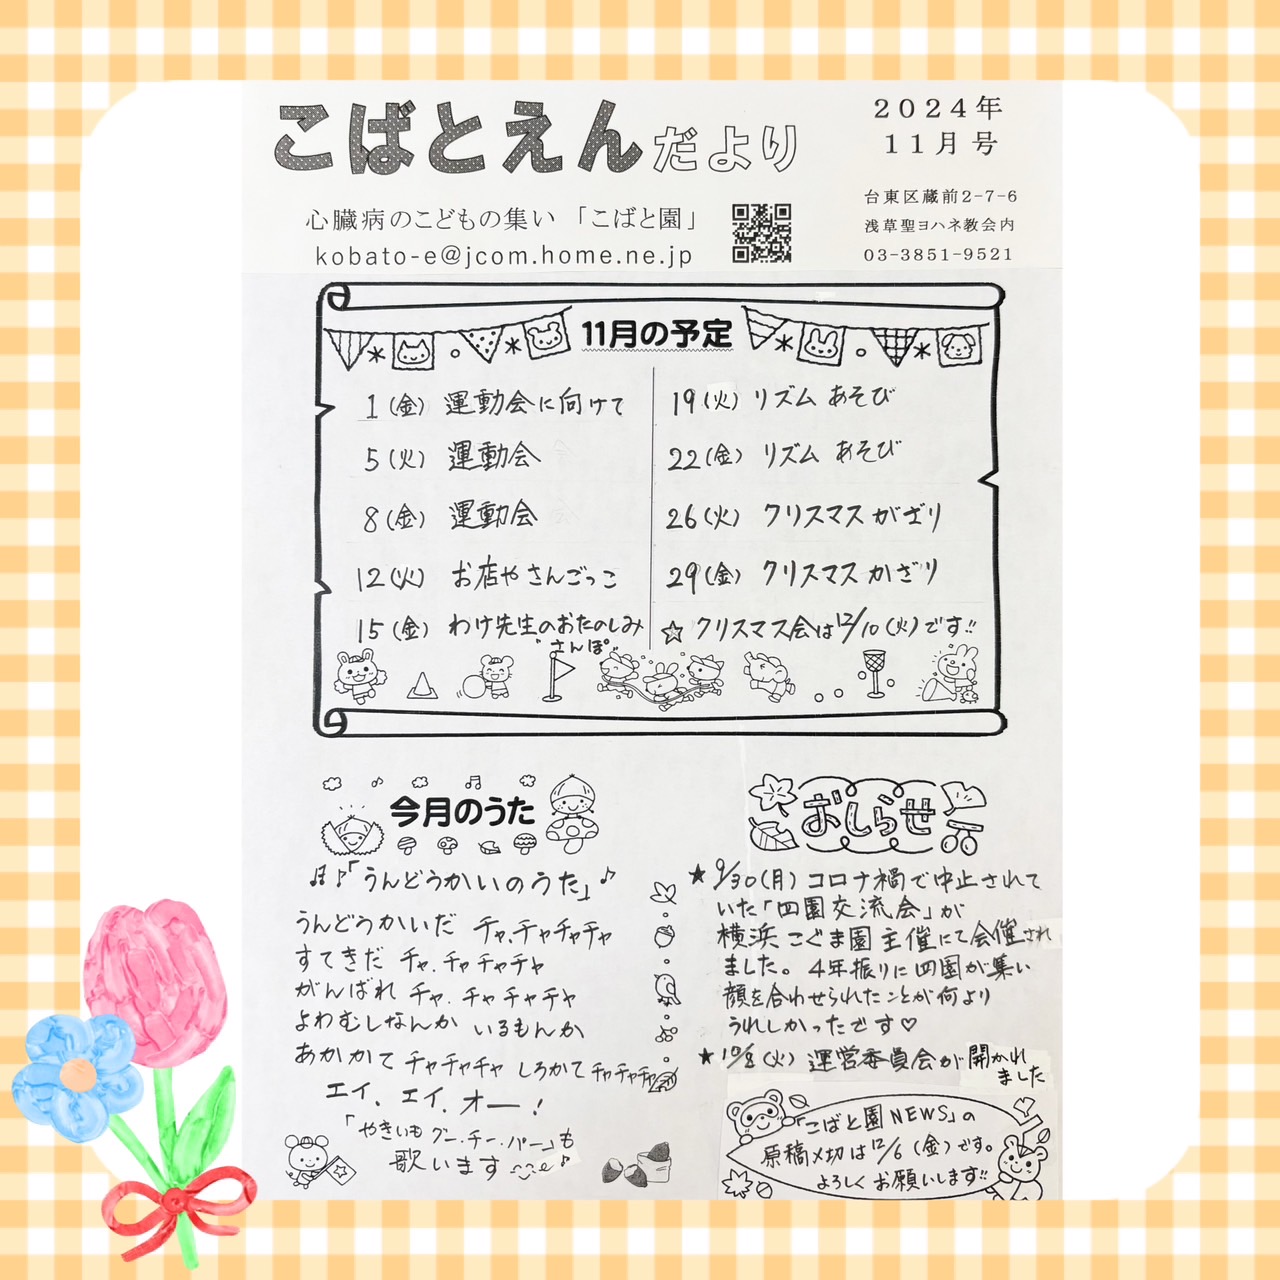 こばとえんだより
2024年
11月号
心臓病のこどもの集い「こばと園」
kobato-e@jcom.home.ne.jp
台東区蔵前2-7-6
浅草聖ヨハネ教会内
03-3851-9521
11月の予定
1(金) 運動会に向けて
5(火) 運動会
8(金) 運動会
12(火) お店やさんごっこ
15(金) わけ先生のおたのしみ
"さんぽ"
19(火) リズムあそび
22(金) リズムあそび
26(火) クリスマスかざり
29(金) クリスマスかざり
☆クリスマス会は12/10(火)です!!
今月のうた
♫♪「うんどうかいのうた」♪
うんどうかいだ チャ.チャチャチャ
すてきだ チャ.チャチャチャ
がんばれ チャ.チャチャチャ
よわむしなんか いるもんか
あかかて チャチャチャ しろかてチャチャチャ
エイ、エイ、オー!
「やきいもグー・チー・パー」も
歌います♪
おしらせ
★9/30(月)コロナ禍で中止されて
いた「四園交流会」が
横浜こぐま園主催にて会催され
ました。4年振りに四園が集い
顔を合わせられたことが何より
うれしかったです♡
★10/8(火)運営委員会が開かれ
ました
「こばと園NEWS」の
原稿〆切は12/6(金)です。
よろしくお願いします!!